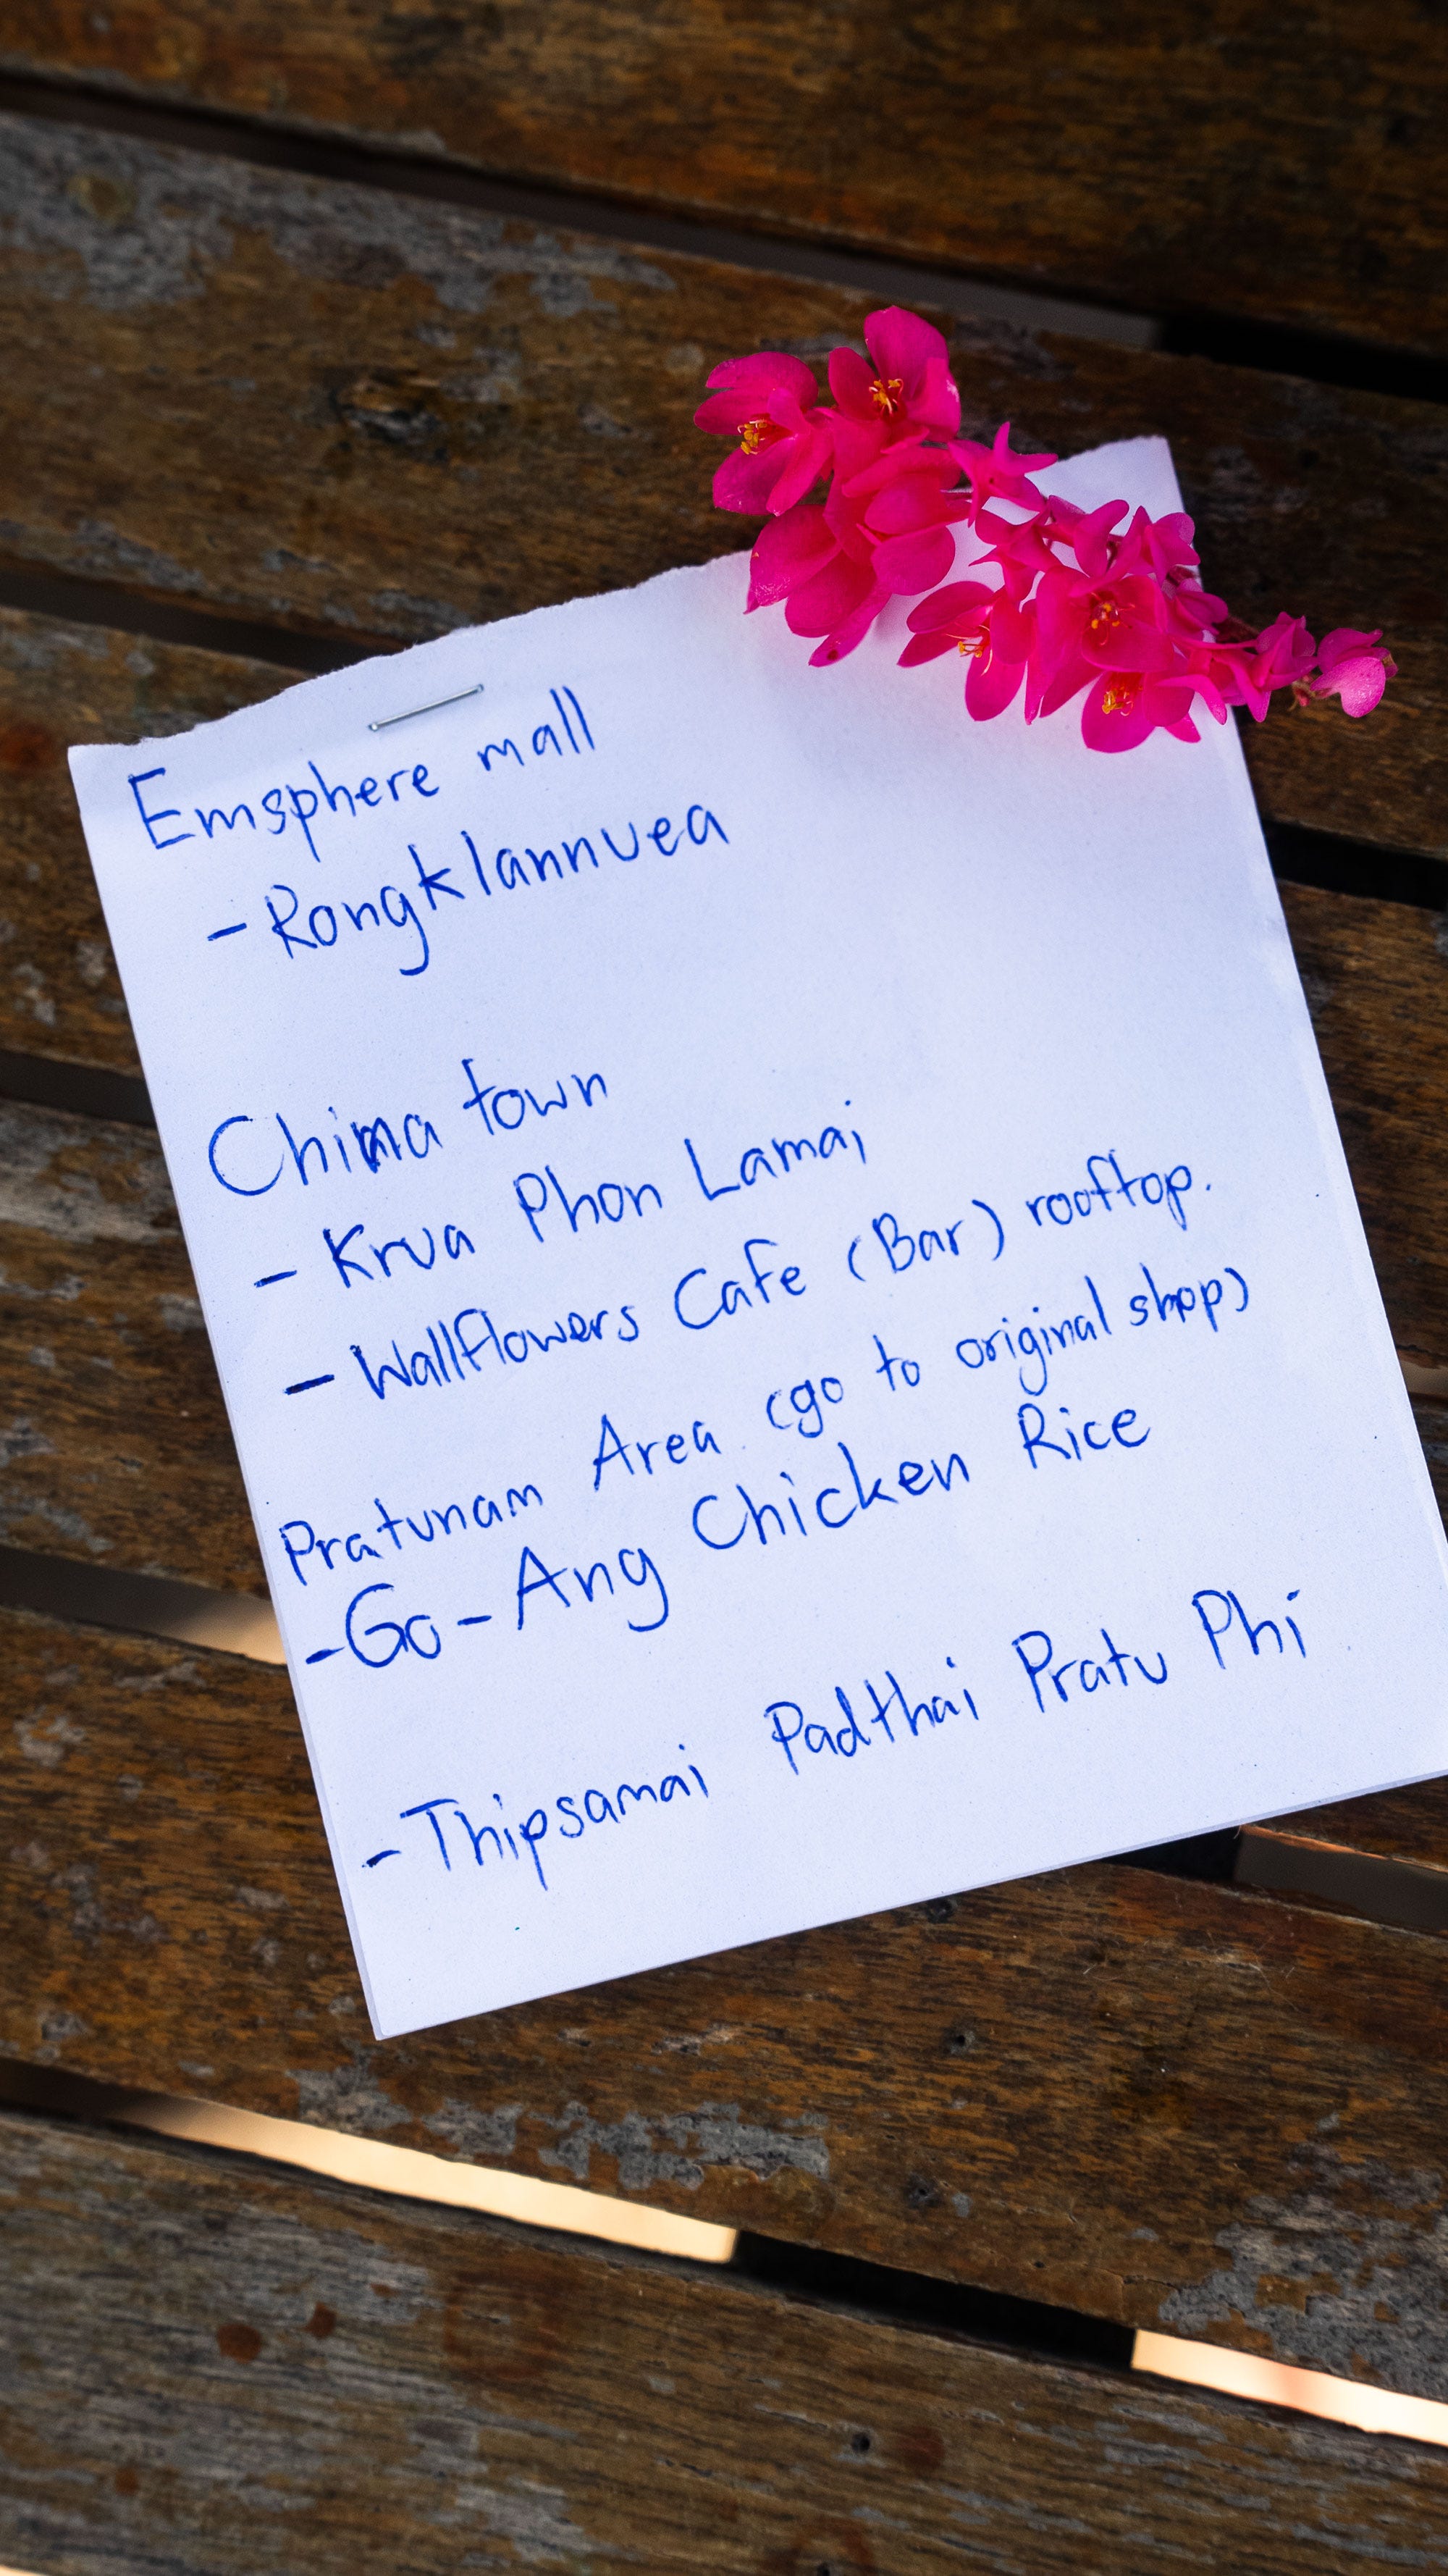 Emsphere mall
- Rongklannuea
China town
- Krua Phon Lamai
- Wallflowers Cafe (Bar) rooftop.
Pratunam Area (go to original shop)
- Go-Ang Chicken Rice
- Thipsamai Padthai Pratu Phi